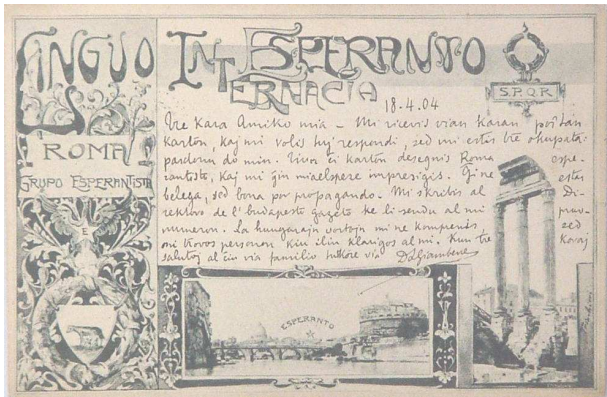 LINGVO
INTERNACIA
ESPERANTO
S.P.Q.R
ROMA
GRUPO ESPERANTISTA
E
18-4.04
Tre Kara Amiko mia - Mi ricevis vian karan poŝtan
karton, kaj mi volis tuj respondi, sed mi estis tre okupata:
pardonu do min. ĉi karton desegnis Roma espe-
rantisto, kaj mi ĝin presigis. Ĝi ne estas
belega, sed bona por propagando. Mi skribis al Di-
rektoro de l' budapesto gazeto ke li sendu al mi
numeron. La hungarajn vortojn mi ne komprenis sed
mi trovos personon kiu ilin klarigos al mi. Kun tre koraj
salutoj al ĉiu via familio tutkore via
ESPERANTO